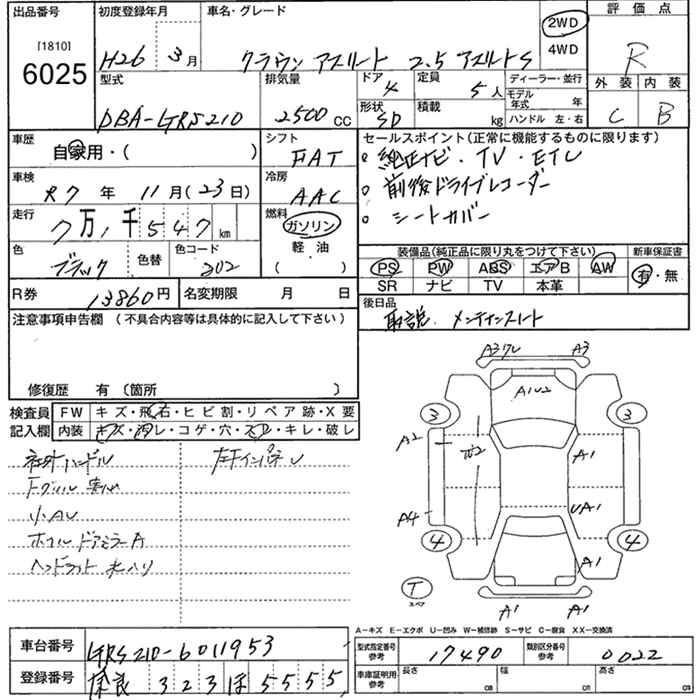 出品番号 初度登録年月 車名・グレード 評価点
[1810] 6025 H26年 3月 クラウン アスリート 2.5 アスリートS 2WD 4WD R
型式 排気量 ドア 4 定員 5人 ディーラー・並行 外装 内装
DBA-GRS210 2500cc 形状 SD 積載 kg モデル年式 年 ハンドル 左・右 C B
車歴 自家用・( ) シフト FAT セールスポイント(正常に機能するものに限ります)
純正ナビ・TV・ETC
車検 R7年 11月(23日) 冷房 AAC 前後ドライブレコーダー
走行 7万1千547km 燃料 ガソリン シートカバー
軽・油
( )
色 ブラック 色替 色コード 202 装備品(純正品に限り丸をつけて下さい) 新車保証書
PS PW ABS エアB AW 有・無
SR ナビ TV 本革
R券 13860円 名変期限 月 日 後日品
取説. メンテナンスノート
注意事項申告欄(不具合内容等は具体的に記入して下さい)
修復歴 有(箇所 )
検査員 FW キズ・飛石・ヒビ割・リペア跡・X要
記入欄 内装 キズ・汚レ・コゲ・穴・スレ・キレ・破レ
社外ハンドル
Fグリル
小AU
ホイール ドアミラーA
A3 A3
A1U2
3 3
A2 W2 A1
A4 UA1
4 4
A1
T スペア
A1 A1
A−キズ E−エクボ U−凹み W−補修跡 S−サビ C−腐食 XX−交換済
車台番号 GRS210-6011953 型式指定番号 参考 17490 類別区分番号 参考 0022
登録番号 奈良 323 ほ 5555 車庫証明用 参考 長さ cm 幅 cm 高さ cm